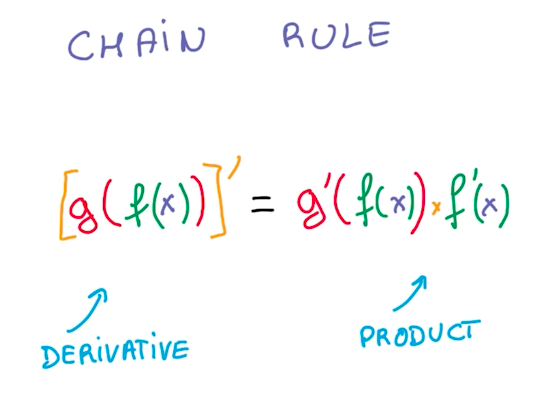 CHAIN RULE
[g(f(x))]' = g'(f(x)) × f'(x)
DERIVATIVE PRODUCT